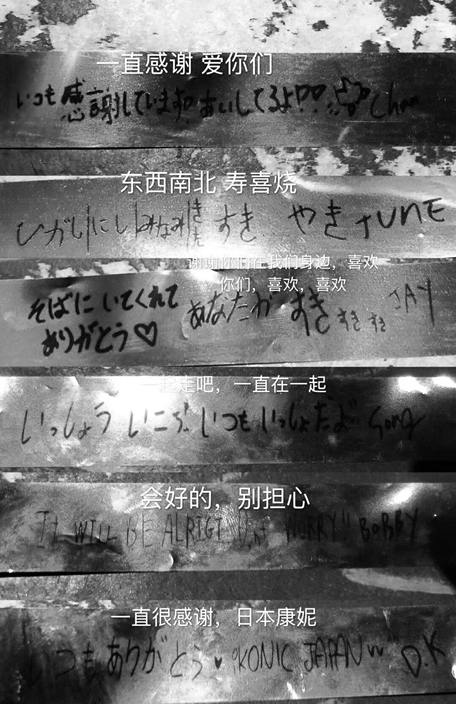 一直感谢 爱你们
いつも感謝しています あいしてるよ♡♡ Chan
东西南北 寿喜烧
ひがし にし みなみ きた すき やき JUNE
谢谢你们在我们身边,喜欢
你们,喜欢,喜欢
そばに いてくれて あなたが すき すき すき JAY
ありがとう♡
一起走吧,一直在一起
いっしょう いこう いつも いっしょだよ Song
会好的,别担心
IT WILL BE ALRIGT WORRY!! BOBBY
一直很感谢,日本康妮
いつも ありがとう♥ iKONIC JAPAN D.K